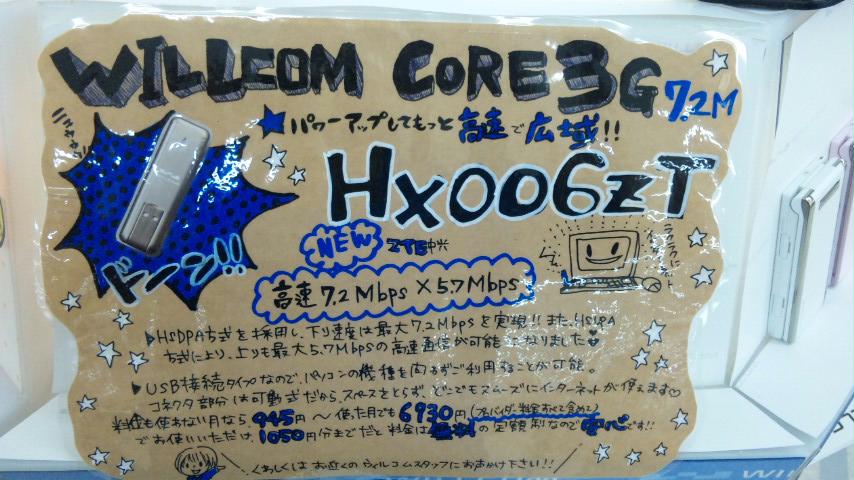 WILLCOM CORE 3G 7.2M
パワーアップしてもっと高速で広域!!
HX006ZT
ドーン!!
NEW ZTE中兴
高速7.2Mbps×5.7Mbps
▶HSDPA方式を採用し、下り速度は最大7.2Mbpsを実現!!また、HSUPA
方式により、上りも最大5.7Mbpsの高速通信が可能になりました
▶USB接続タイプなので、パソコンの機種を内わずご利用することが可能。
コネクタ部分は可動式だから、スペースをとらず、どこでもスムーズにインターネットが使えます♡
料金も使わない月なら945円〜使った月でも6930円(プロバイダー料金すべて含め)
でお使いいただけ1050円分までだと料金は無料の定額制なので安心です!!
くわしくはお近くのウィルコムスタッフにお声かけ下さい!!